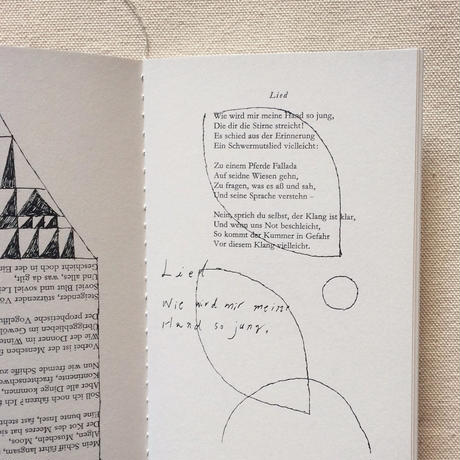 Mein Schiff fährt langsam,
Algen, Muscheln, Moos,
Der Kot des Meeres hat
Eine bunte Insel, fast steht
Soll ich noch fahren? Ich
Aber alle Dinge kommen,
Kontinente,
Nun wie fremde Schiffe zu
Vorbei ist der Menschen
Wie der Donner im
Übriggeblieben im
Der prophetische
Steigender, stürzender
Soviel Blut und soviel
Und alles, was da gilt,
Geschieht doch in der
Lied
Wie wird mir meine Hand so jung,
Die dir die Stirne streicht!
Es schied aus der Erinnerung
Ein Schwermutslied vielleicht:
Zu einem Pferde Fallada
Auf seidne Wiesen gehn,
Zu fragen, was es aß und sah,
Und seine Sprache verstehn –
Nein, sprich du selbst, der Klang ist klar,
Und wenn uns Not beschleicht,
So kommt der Kummer in Gefahr
Vor diesem Klang vielleicht.
Lied
Wie wird mir meine
Hand so jung,